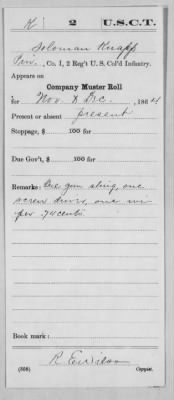 K 2 U.S.C.T.
Soloman Knapp
Pvt., Co. I, 2 Reg't U. S. Col'd Infantry.
Appears on
Company Muster Roll
for Nov. & Dec., 1864
Present or absent present
Stoppage, $ 100 for
Due Gov't, $ 100 for
Remarks: One gun sling, one
screw driver, one
74 cents.
Book mark:
R
(858) Copyist.